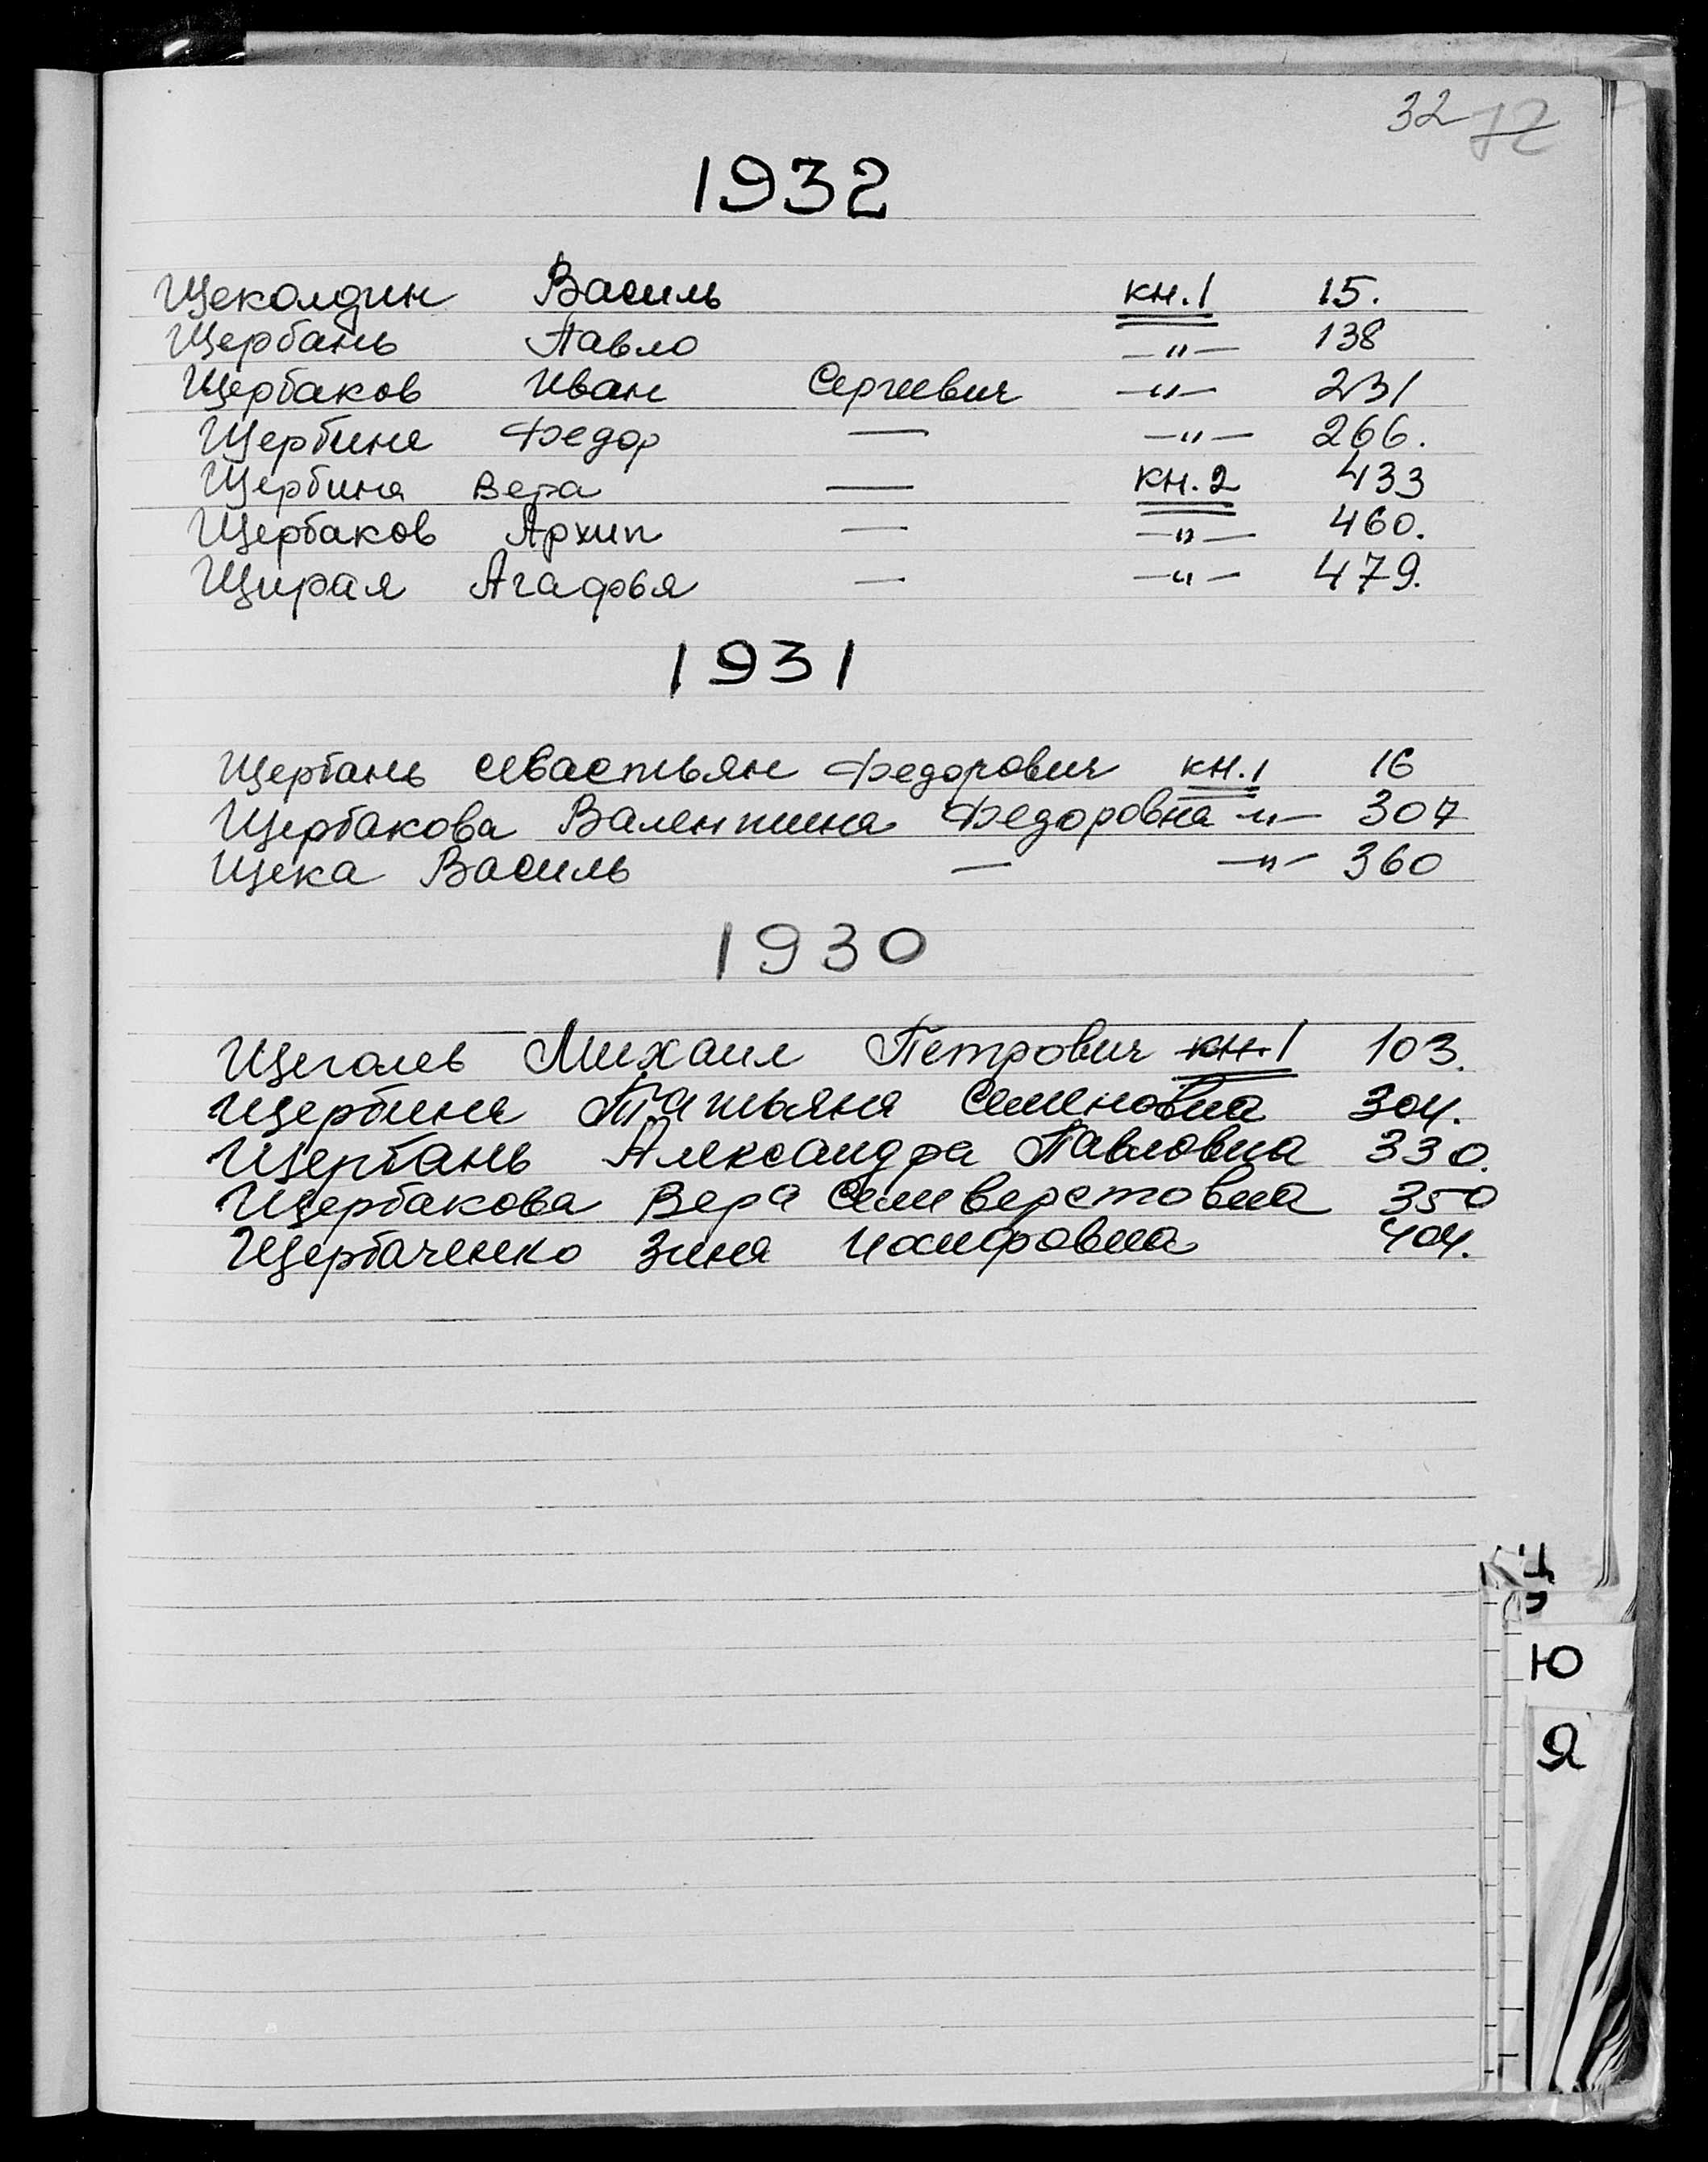 32
1932
Щеколдин Василь кн.1 15.
Щербань Павло —"— 138
Щербаков Иван Сергеевич —"— 231
Щербина Федор — —"— 266.
Щербина Вера — кн.2 433
Щербаков Архип — —"— 460.
Щирая Агафья — —"— 479.
1931
Щербань Севастьян Федорович кн.1 16
Щербакова Валентина Федоровна —"— 307
Щека Василь — —"— 360
1930
Щеголев Михаил Петрович кн.1 103.
Щербина Татьяна Семеновна 304.
Щербань Александра Павловна 330.
Щербакова Вера Селиверстовна 350
Щербаченко Зина Иосифовна 404.
Ю
Я